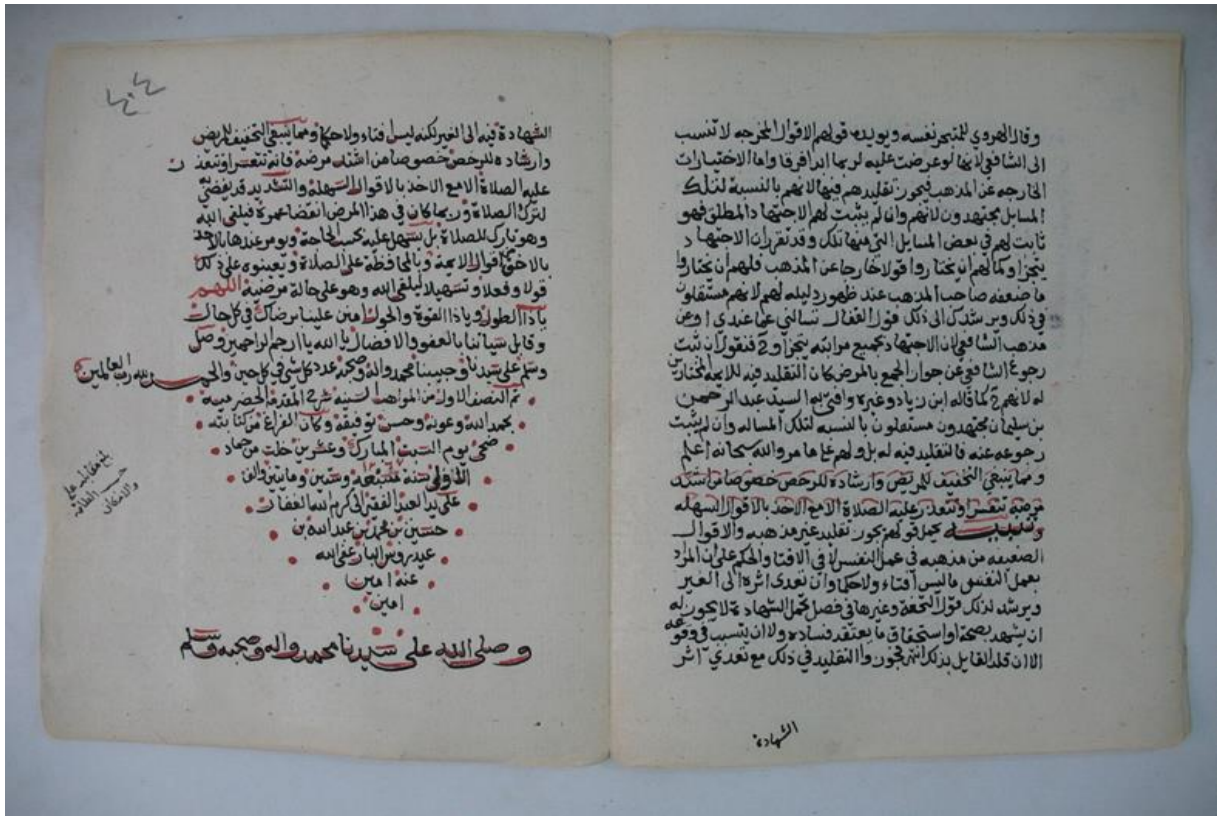 وقال الهروي للمتبحر نفسه ويويده قولهم الاقوال المخرجه لا تنسب
الى الشافعي لانها لو عرضت عليه لربما ابدا فرقا واما الاختيارات
الخارجه عن المذهب فيجوز تقليدهم فيها لانهم بالنسبة لتلك
المسايل مجتهدون لانهم وان لم يثبت لهم الاجتهاد المطلق فهو
ثابت لهم في بعض المسايل التي منها تلك وقد تقرر ان الاجتهاد
يتجزا وكما لهم ان يختاروا قولا خارجا عن المذهب فلهم ان يختاروا
ما ضعفه صاحب المذهب عند ظهور دليله لهم لانهم مستقلون
في ذلك ويرشدك الى ذلك قول القفال تسالني عما عندي او عن
مذهب الشافعي لان الاجتهاد بجميع مراتبه يتجزا و2 فنقول ان ثبت
رجوع الشافعي عن جواز الجمع بالمرض كان التقليد فيه للايمه المختارين
له لانهم 2 كما قاله ابن زياد وغيره وافتى به السيد عبد الرحمن
بن سليمان مجتهدون مستقلون بالنسبه لتلك المساله وان لم يثبت
رجوعه عنه فالتقليد فيه له بل ولهم على ما مر والله سبحانه اعلم
ومما ينبغي التخفيف للمريض وارشاده للرخص خصوصا من اشتد
مرضه فتعسر وتتعذر عليه الصلاة الا مع الاخذ بالاقوال السهله
وتنبيه يحمل قولهم يجوز تقليد غير مذهبه والاقوال
الضعيفه من مذهبه في عمل النفس لا في الافتا والحكم على ان المراد
بعمل النفس ما ليس افتاء ولا حكما وان تعدى اثره الى الغير
ويرشد لذلك قول التحفة وغيرها في فصل تحمل الشهادة لا يجوز له
ان يشهد بصحة او استحقاق ما يعتقد فساده ولا ان يتسبب في وقوعه
الا ان قلد القايل بذلك انتهى فجوزوا التقليد في ذلك مع تعدي اثر
الشهادة
الشهادة فيه الى الغير لكنه ليس افتاء ولا حكما ومما ينبغي التخفيف للمريض
وارشاده للرخص خصوصا من اشتد مرضه فانه تتعسر او تتعذر
عليه الصلاة الا مع الاخذ بالاقوال السهلة والتشديد قد يفضي به
لترك الصلاة وربما كان في هذا المرض انقضا عمره فيلقى الله
وهو تارك للصلاة بل يسهل عليه بحسب الحاجة ويومر عندها بالاخذ
بالاخف من اقوال الايمة وبالمحافظة على الصلاة ويعينوه على ذلك
قولا وفعلا وتسهيلا ليلقى الله وهو على حالة مرضية اللهم
ياذا الطول وياذا القوة والحول امنن علينا برضاك في كل حالت
وقابل سياتنا بالعفو والافضال يا الله يا ارحم الراحمين وصل
وسلم على سيدنا وحبيبنا محمد واله وصحبه عدد كل شي في كل حين والحمد لله رب العالمين
تم النصف الاول من المواهب السنيه شرح المقدمة الحضرميه
بحمد الله وعونه وحسن توفيقه وكان الفراغ من كتابته
ضحى يوم السبت المبارك وعشرين خلت من جماد
الاولى سنة ١٢٦٧ سبعه وستين وماتين والف
على يد العبد الفقير الى كريم
حسين بن محمد بن عبد الله بن
عيدروس البار عفى الله
عنه امين
امين
وصلى الله على سيدنا محمد واله وصحبه وسلم
بلغ مقابلة على
حسب الطاقة
والامكان